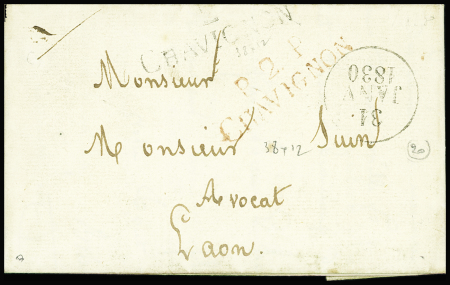 CHAVIGNON
P. 2. P.
CHAVIGNON
34
JANV
1830
Monsieur
Monsieur Suin
38+12
20
Avocat
Laon.